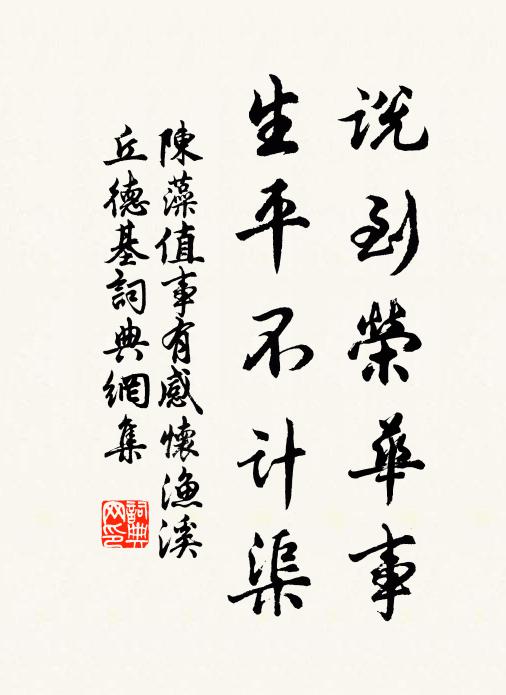 说到榮華事
生平不计渠
陳藻值事有感懷漁溪
丘德基詞典網集
詞典
网印